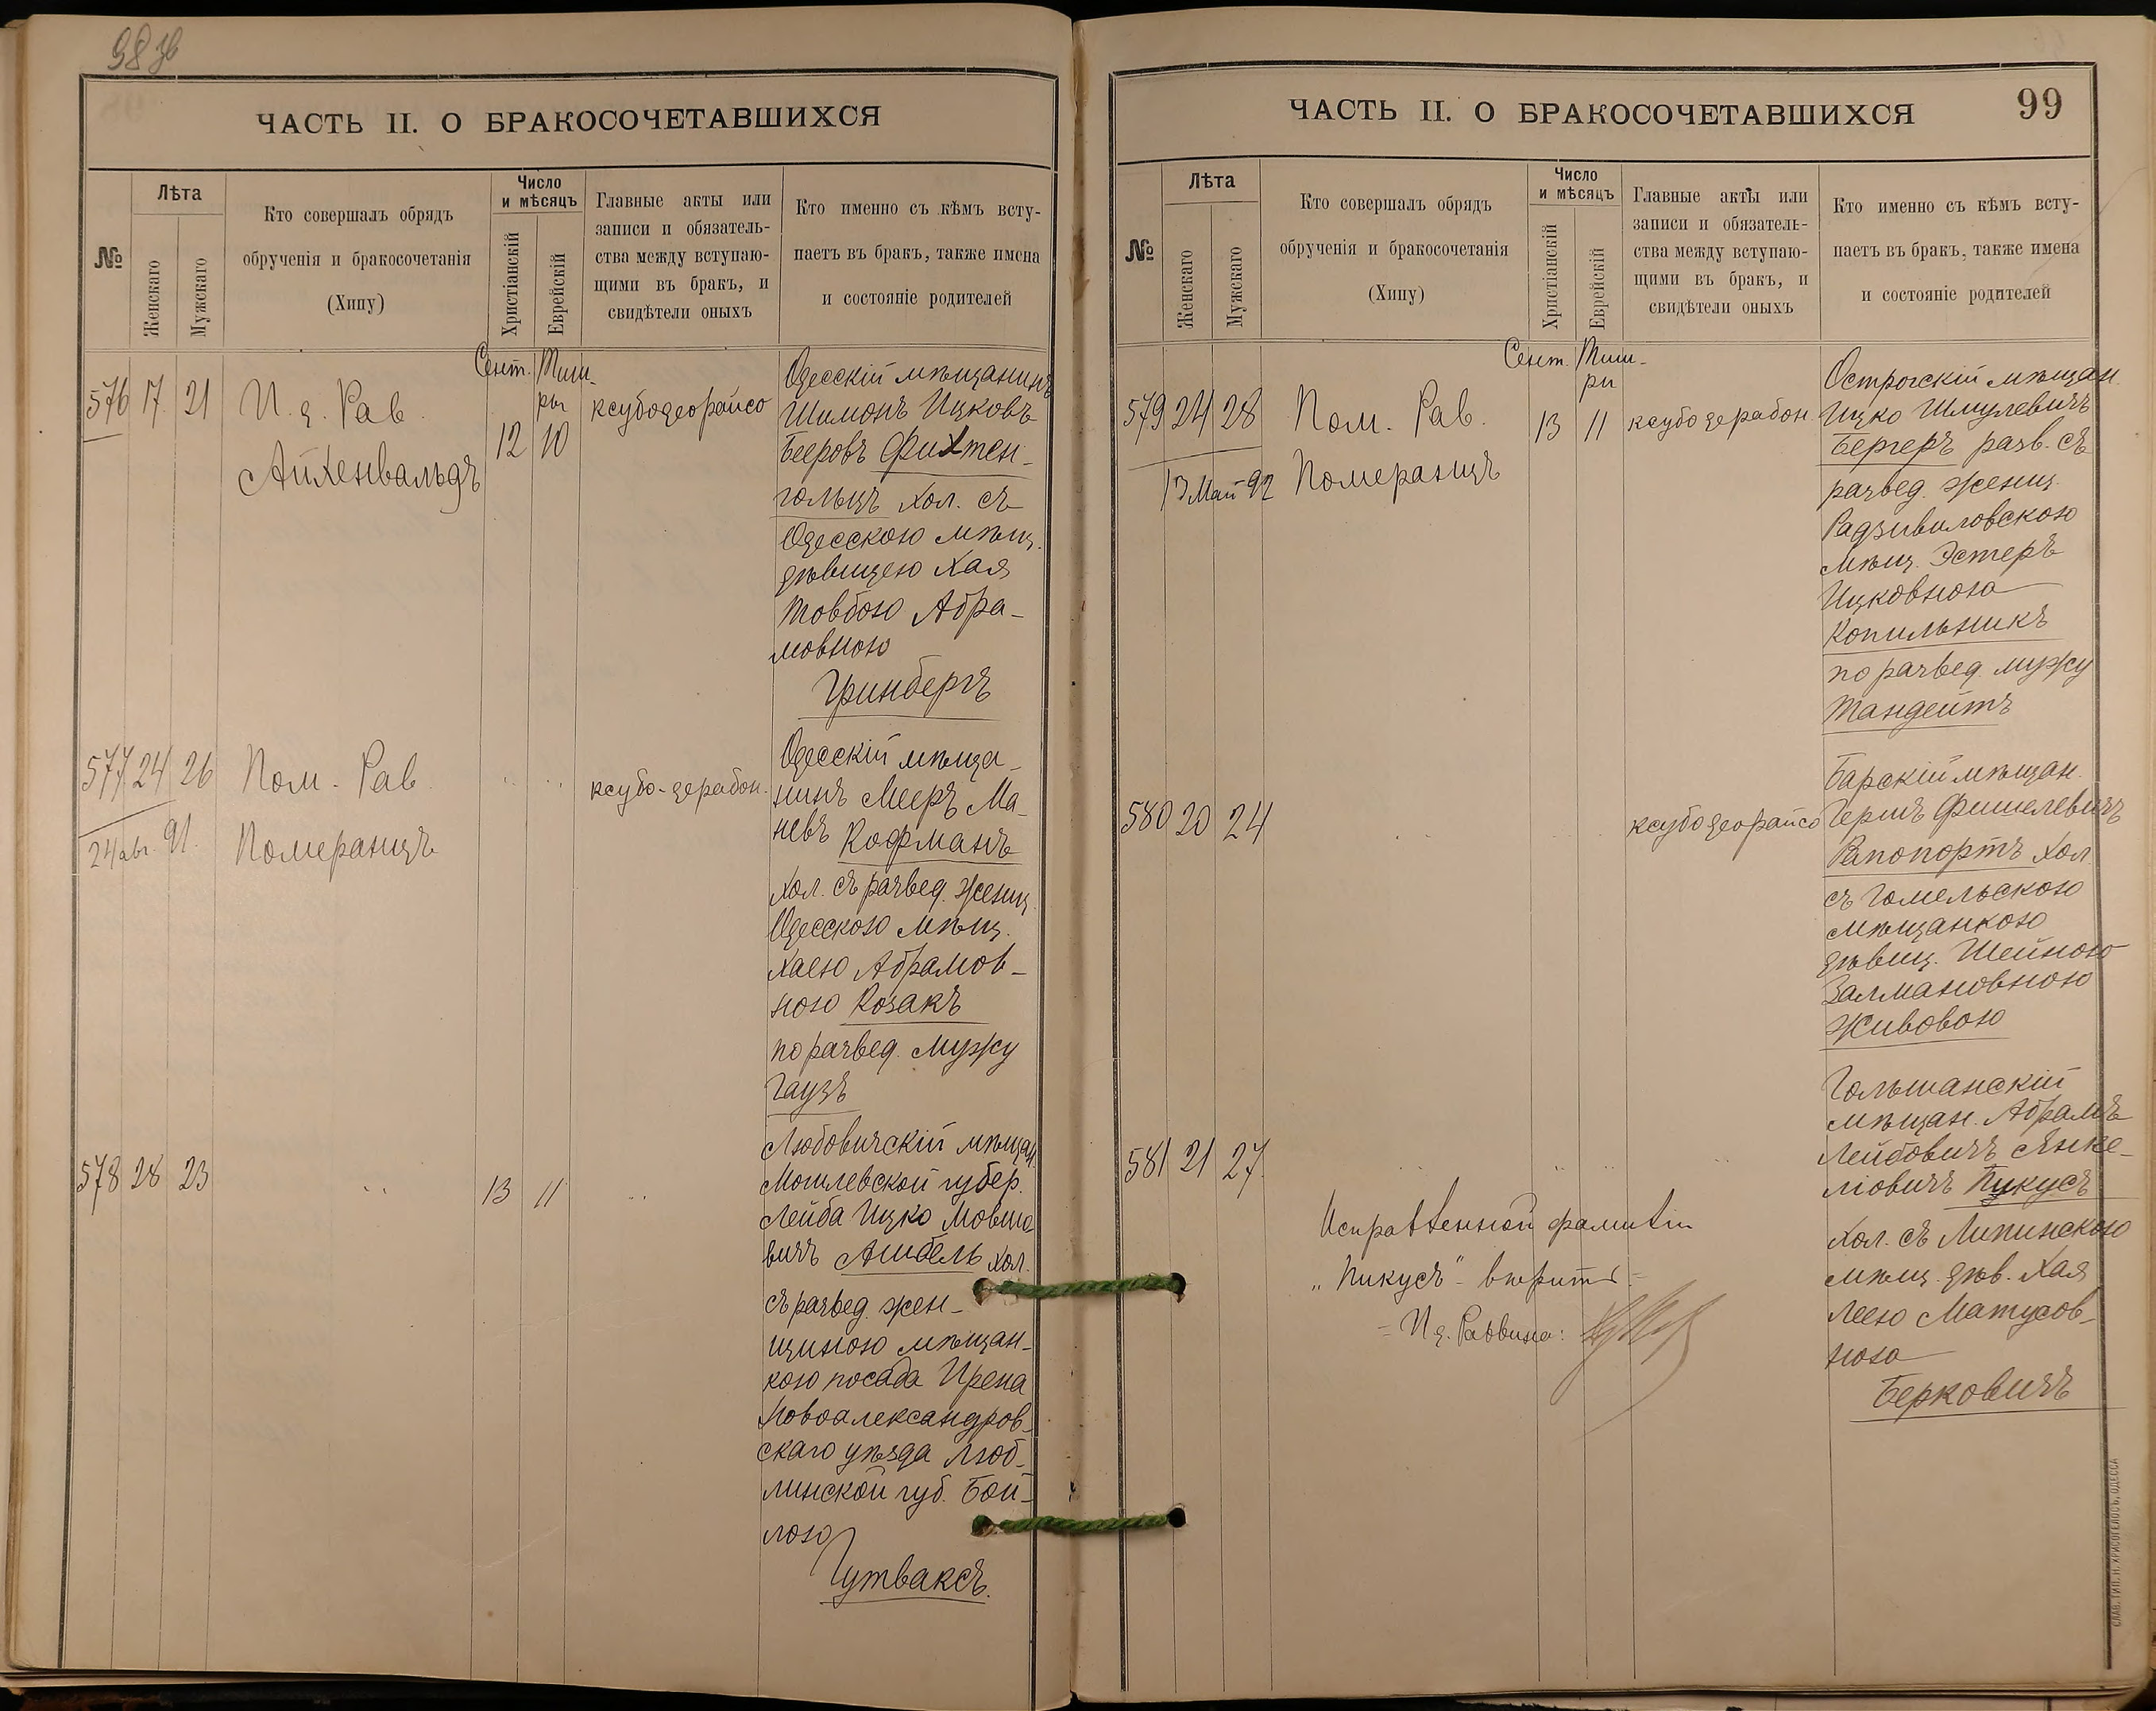 98 об
ЧАСТЬ II. О БРАКОСОЧЕТАВШИХСЯ
№
Лѣта
Женскаго
Мужскаго
Кто совершалъ обрядъ
обрученія и бракосочетанія
(Хипу)
Число
и мѣсяцъ
Христіанскій
Еврейскій
Главные акты или
записи и обязатель-
ства между вступаю-
щими въ бракъ, и
свидѣтели оныхъ
Кто именно съ кѣмъ всту-
паетъ въ бракъ, также имена
и состояніе родителей
Сент. Тиш-
ри
576 17 21 И. д. Рав.
Айхенвальдъ
12 10
ксубодеорайсо
Одесскій мѣщанинъ
Шимонъ Ицковъ
Бееровъ Фихтен-
гольцъ хол. съ
Одесскою мѣщ.
дѣвицею Хая
Товбою Абра-
мовною
Гринбергъ
577 24 26 Пом. Рав.
24 авг. 91. Померанцъ
" "
ксубо-дерабон.
Одесскій мѣща-
нинъ Мееръ Ма-
невъ Кофманъ
хол. съ развед. женщ.
Одесскою мѣщ.
Хаею Абрамов-
ною Козакъ
по развед. мужу
Гаузъ
578 28 23 " 13 11 "
Любовичскій мѣщан.
Могилевской губер.
Лейба Ицко Мовшо
вичъ Ашбель хол.
съ развед. жен-
щиною мѣщан-
кою посада Ирена
Новоалександров-
скаго уѣзда Люб-
линской губ. Бей-
лою
Гутваксъ.
ЧАСТЬ II. О БРАКОСОЧЕТАВШИХСЯ
99
№
Лѣта
Женскаго
Мужскаго
Кто совершалъ обрядъ
обрученія и бракосочетанія
(Хипу)
Число
и мѣсяцъ
Христіанскій
Еврейскій
Главные акты или
записи и обязатель-
ства между вступаю-
щими въ бракъ, и
свидѣтели оныхъ
Кто именно съ кѣмъ всту-
паетъ въ бракъ, также имена
и состояніе родителей
Сент. Тиш-
ри
579 24 28 Пом. Рав.
13 Май 92 Померанцъ
13 11
ксубо дерабон.
Острогскій мѣщан.
Ицко Шмулевичъ
Бергеръ разв. съ
развед. женщ.
Радзивиловскою
мѣщ. Эстеръ
Ицковною
Копильникъ
по развед. мужу
Тандейтъ
580 20 24 " "
ксубодеорайсо
Барскій мѣщан.
Гершъ Фишелевичъ
Рапопортъ хол.
съ Гомельскою
мѣщанкою
дѣвиц. Шейною
Залмановною
Живовою
581 21 27. " " " "
Гольшанскій
мѣщан. Абрамъ
Лейбовичъ Янке-
ліовичъ Пикусъ
хол. съ Липинскою
мѣщ. дѣв. Хая
Леею Матусов-
ною
Берковичъ
Исправленной фамиліи
„Пикусъ" - вѣрить.
= И д. Раввина:
СЛАВ. ТИП. Н. ХРИСОГЕЛОСЪ, ОДЕССА